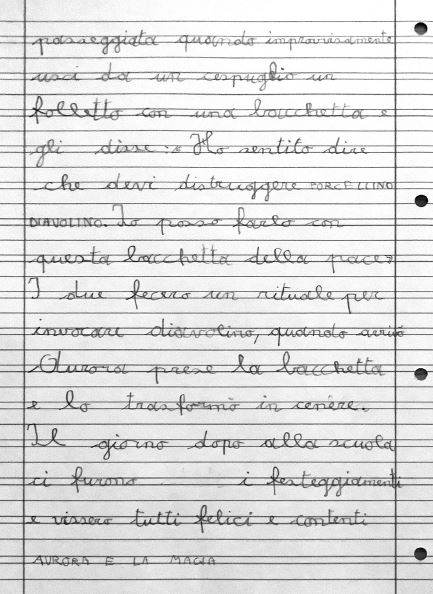 passeggiata quando improvvisamente
uscì da un cespuglio un
folletto con una bacchetta e
gli disse :« Ho sentito dire
che devi distruggere PORCELLINO
DIAVOLINO. Io posso farlo con
questa bacchetta della pace»
I due fecero un rituale per
invocare diavolino, quando arrivò
Aurora prese la bacchetta
e lo trasformò in cenere.
Il giorno dopo alla scuola
ci furono i festeggiamenti
e vissero tutti felici e contenti
AURORA E LA MAGIA